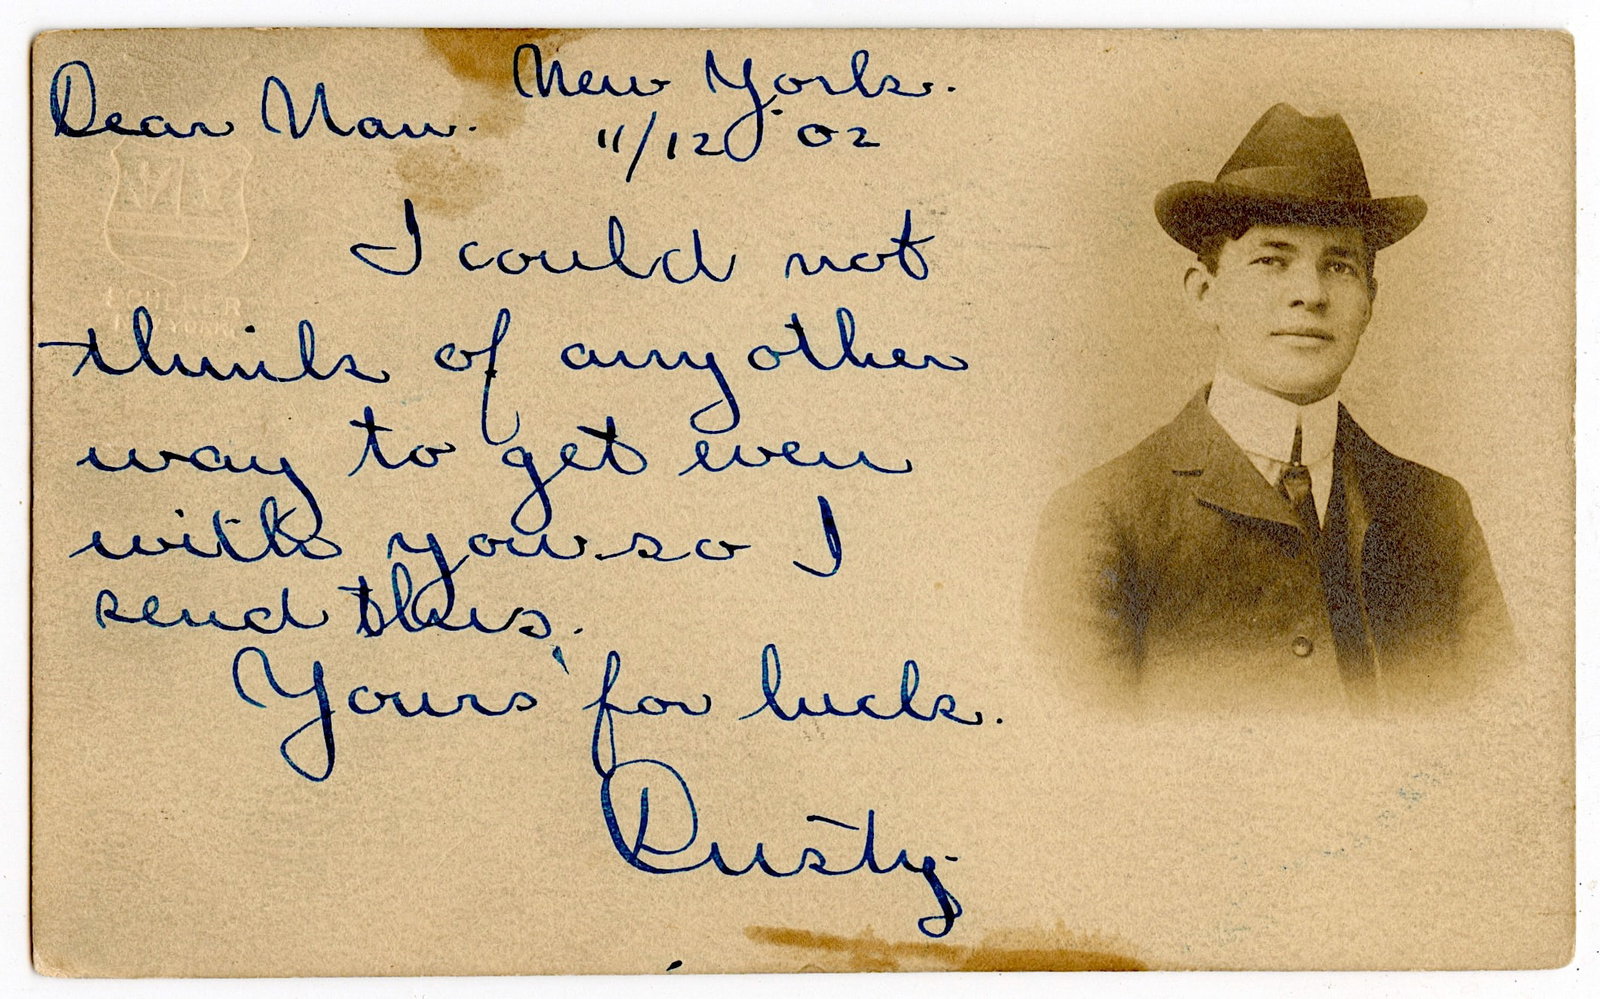 New York.
Dear Nan.
11/12 02
I could not
think of any other
way to get even
with you so I
send this.
Yours for luck.
Rusty